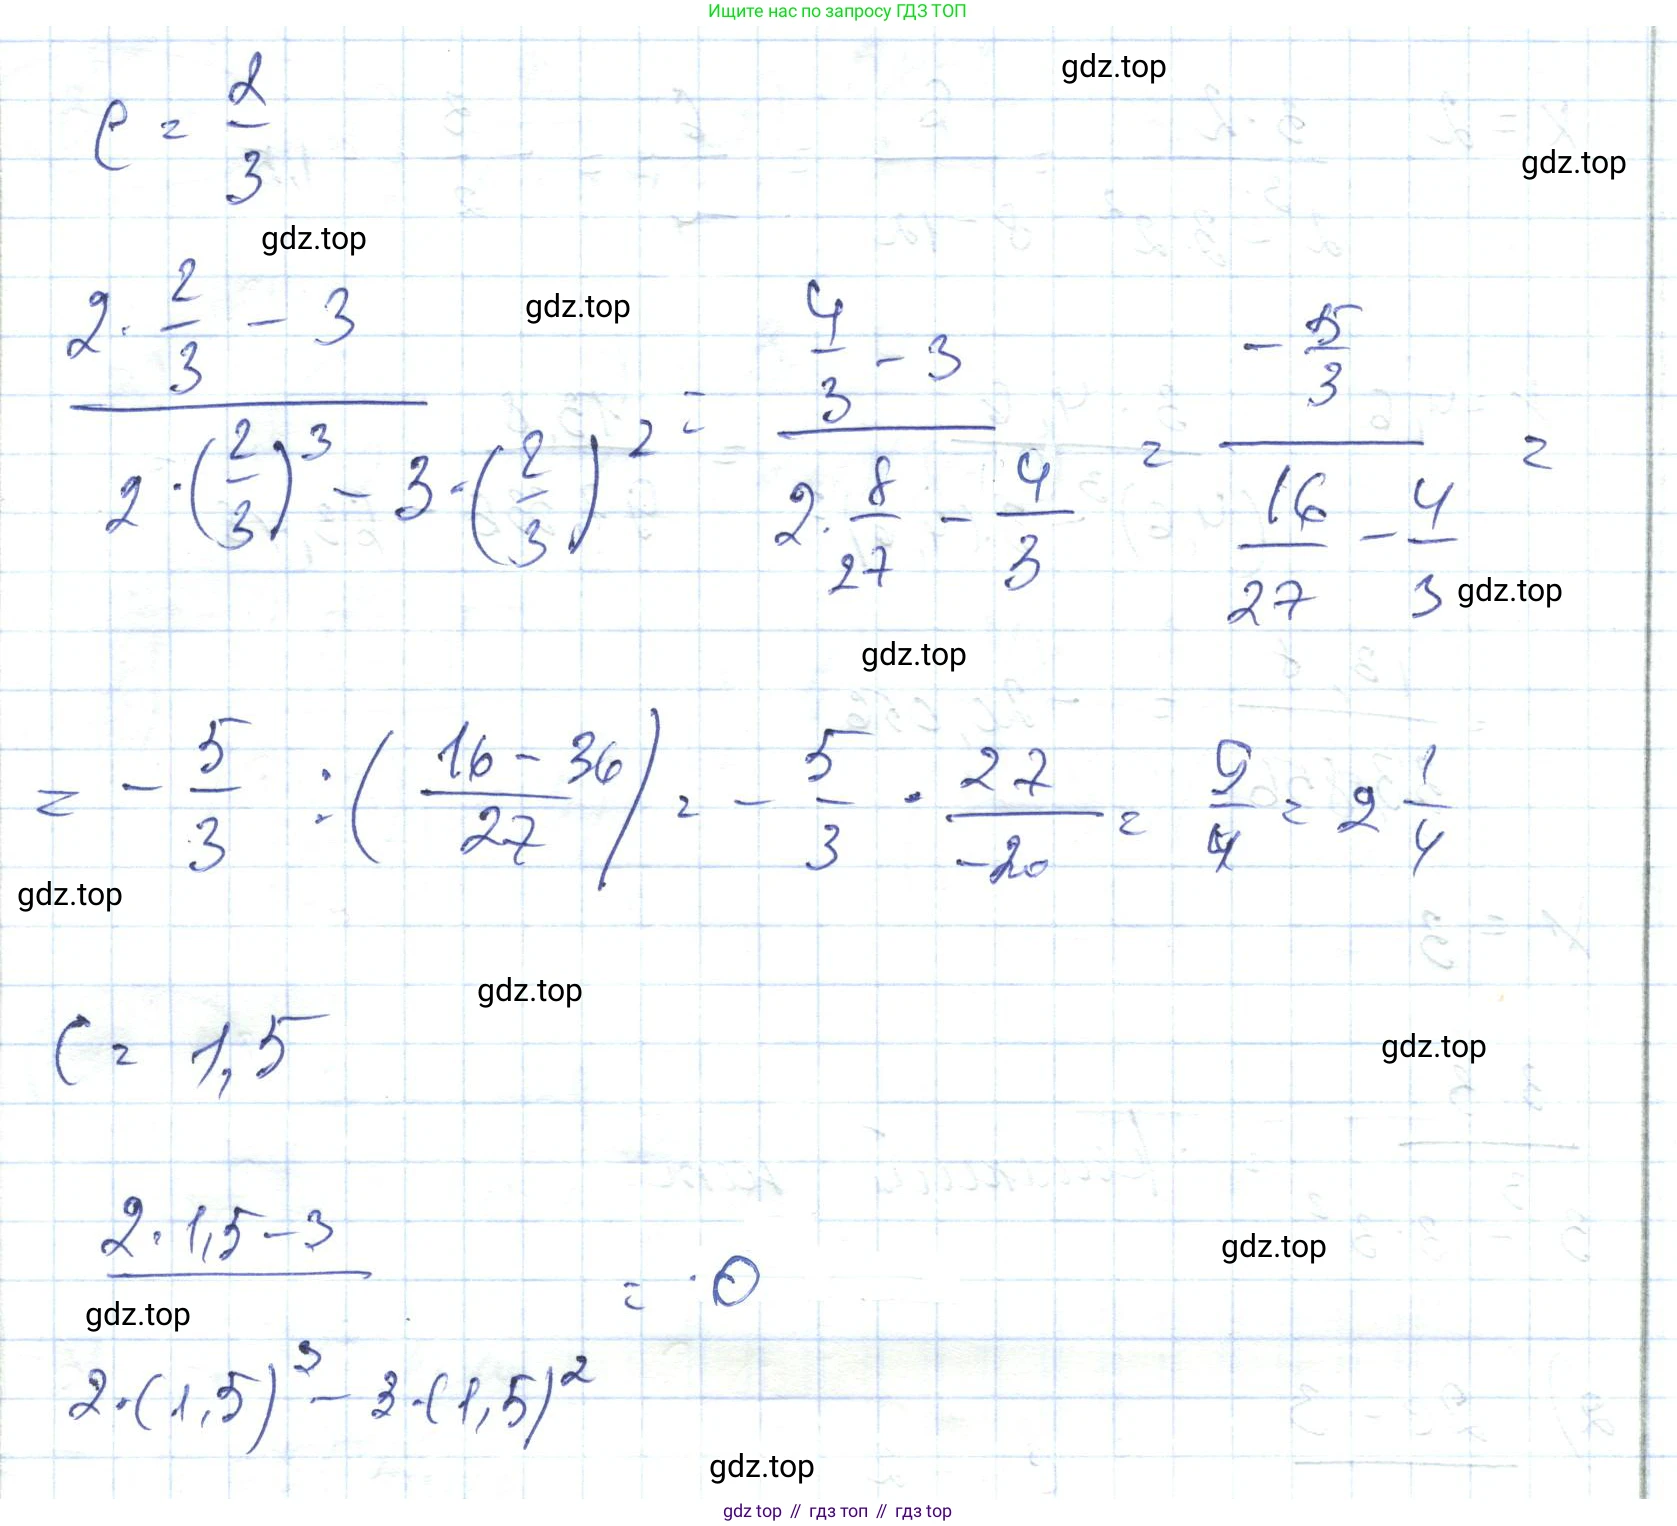 Ищите нас по запросу ГДЗ ТОП
gdz.top
c = 2/3
gdz.top
gdz.top
gdz.top
(2 · 2/3 - 3) / (2 · (2/3)^3 - 3 · (2/3)^2) = (4/3 - 3) / (2 · 8/27 - 4/3) = (-5/3) / (16/27 - 4/3) =
gdz.top
gdz.top
= - 5/3 : ((16 - 36)/27) = - 5/3 · 27/-20 = 9/4 = 2 1/4
gdz.top
gdz.top
c = 1,5
gdz.top
(2 · 1,5 - 3) / (2 · (1,5)^3 - 3 · (1,5)^2) = 0
gdz.top
gdz.top
gdz.top
gdz top // гдз топ // гдз top